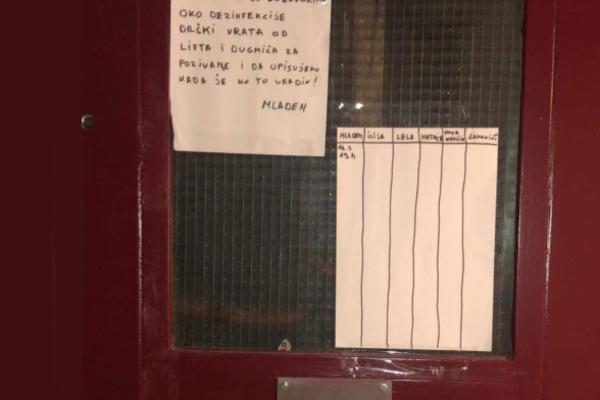 OKO DEZINFEKCIJE
DRŠKI VRATA OD
LIFTA I DUGMIĆA ZA
POZIVANJE I DA UPISUJEMO
KADA JE KO TO URADIO!
MLADEN
MLADEN LELA NATAŠA
14.3
19h